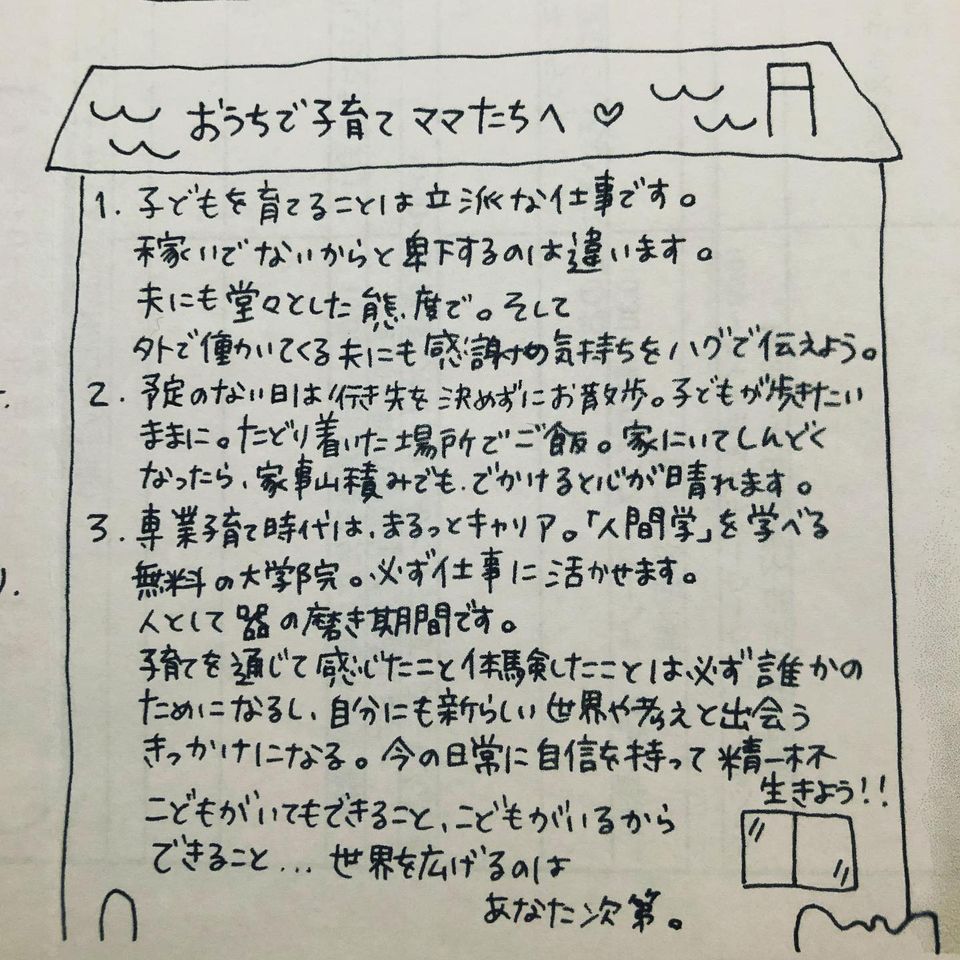 おうちで子育て ママたちへ ♡
1. 子どもを育てることは立派な仕事です。
稼いでないからと卑下するのは違います。
夫にも堂々とした態度で。そして
外で働いてくる夫にも感謝の気持ちをハグで伝えよう。
2. 予定のない日は行き先を決めずにお散歩。子どもが歩きたい
ままに。たどり着いた場所でご飯。家にいてしんどく
なったら、家事山積みでも、でかけると心が晴れます。
3. 専業子育て時代は、まるっとキャリア。「人間学」を学べる
無料の大学院。必ず仕事に活かせます。
人として器の磨き期間です。
子育てを通じて感じたこと体験したことは必ず誰かの
ためになるし、自分にも新らしい世界や考えと出会う
きっかけになる。今の日常に自信を持って精一杯
生きよう!!
こどもがいてもできること、こどもがいるから
できること... 世界を広げるのは
あなた次第。